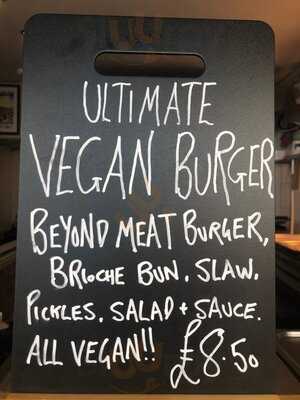 ULTIMATE
VEGAN BURGER
BEYOND MEAT BURGER,
BRIOCHE BUN, SLAW,
PICKLES, SALAD + SAUCE.
ALL VEGAN!! £8.50